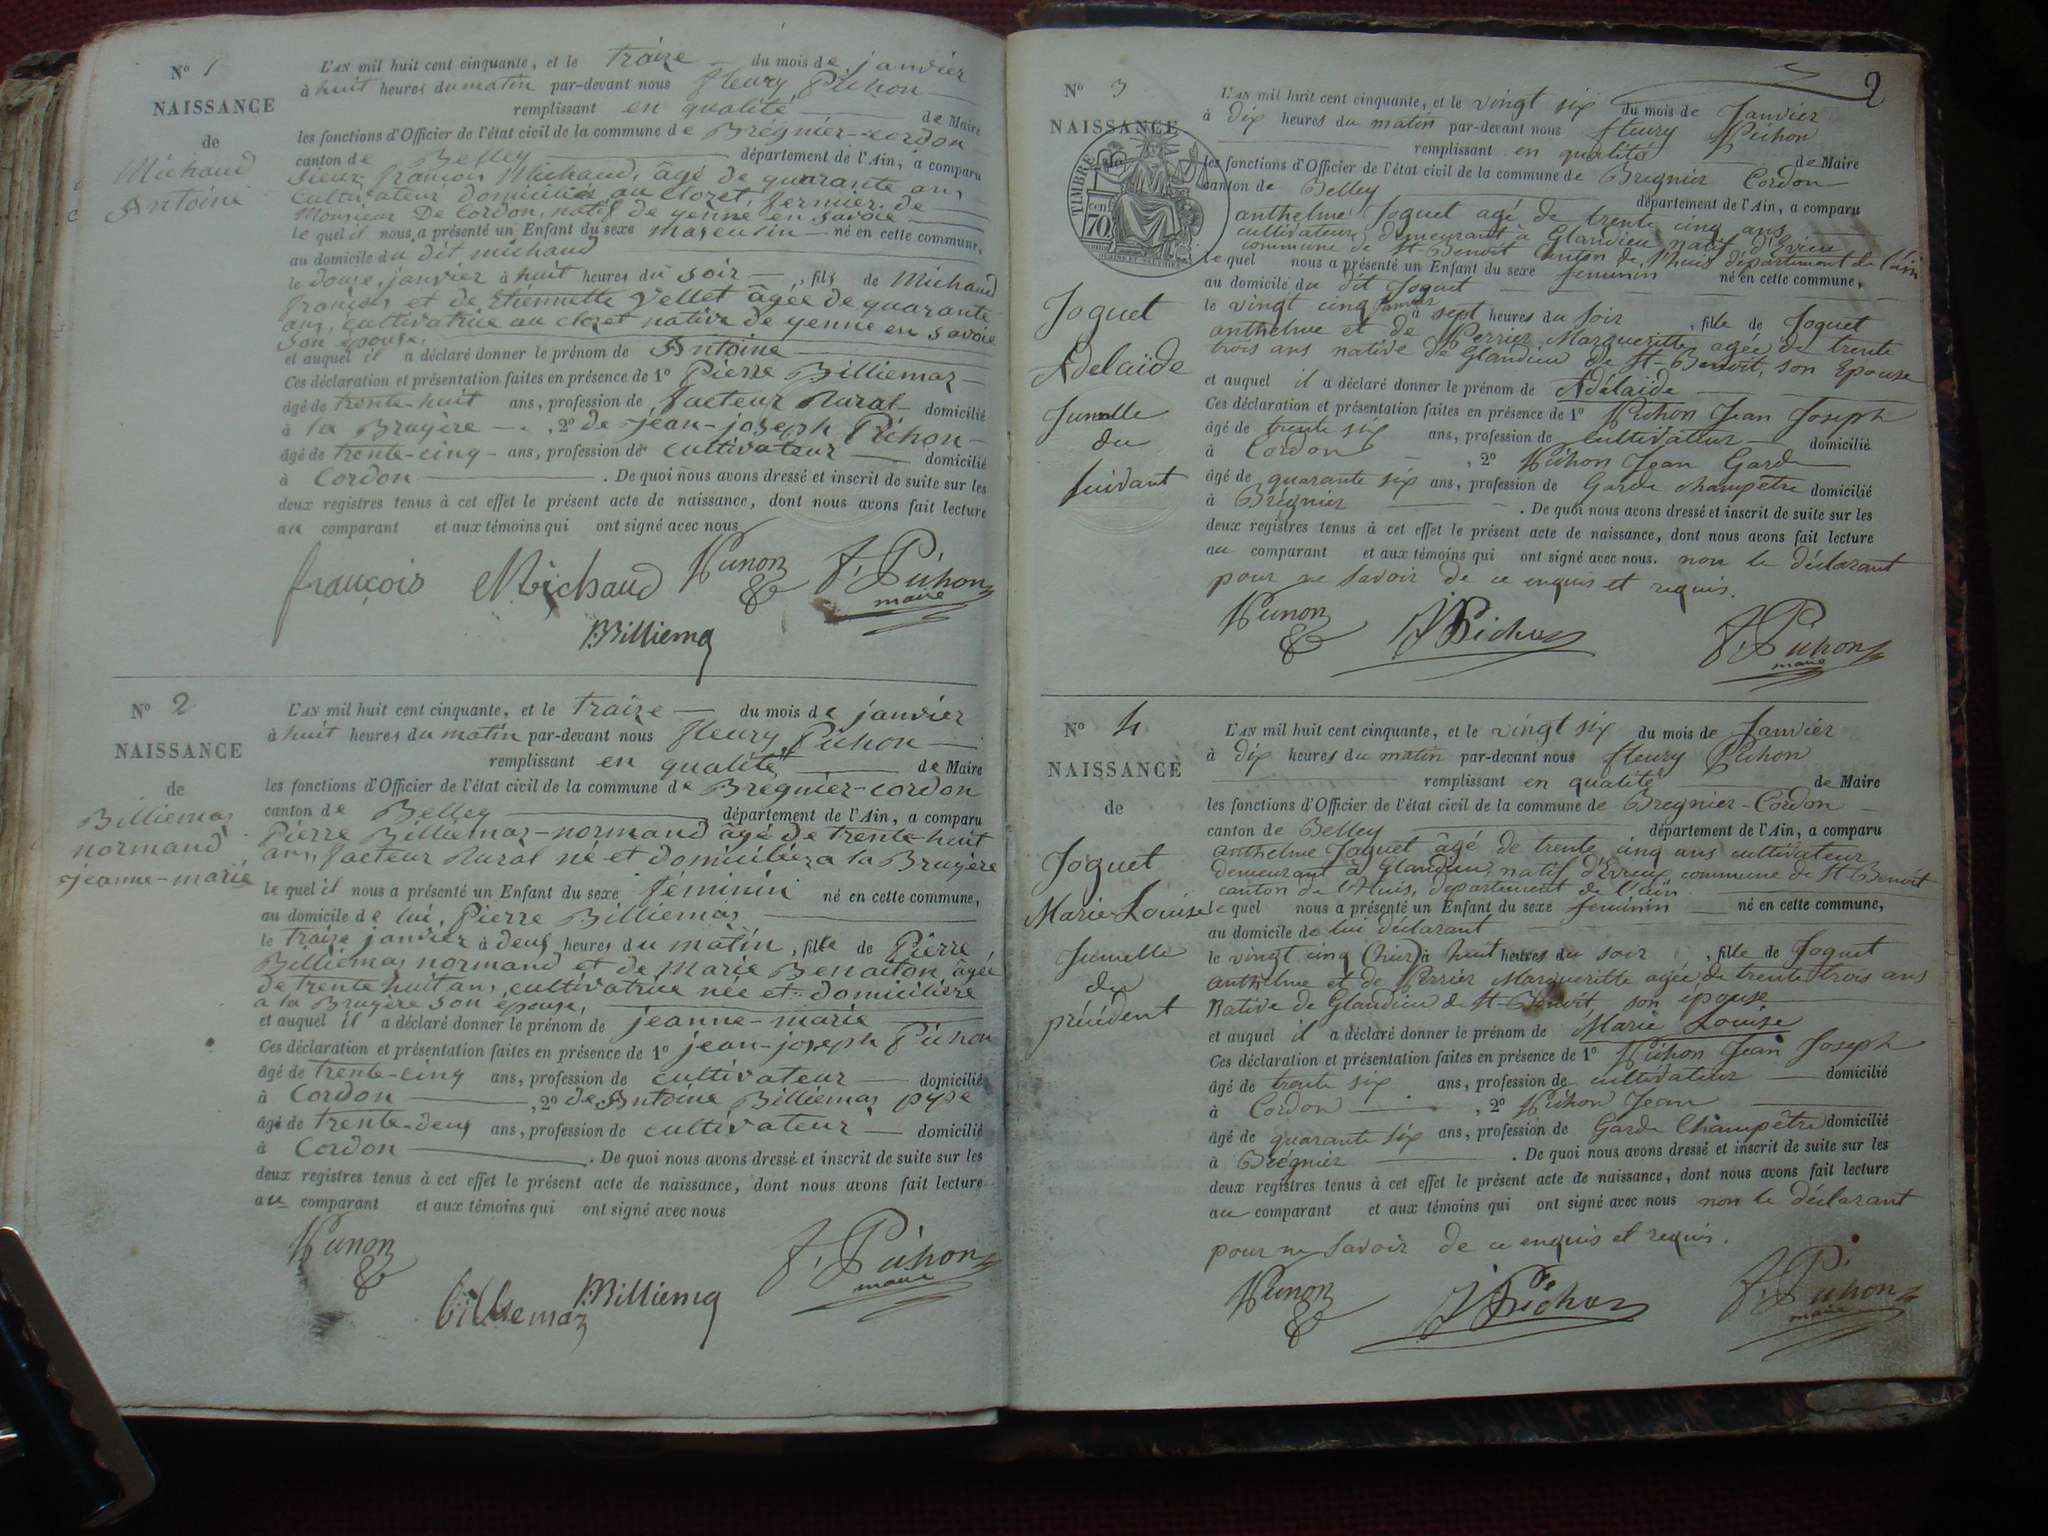 N° 1
NAISSANCE
de
Michaud
Antoine
L'AN mil huit cent cinquante, et le traize du mois de janvier
à huit heures du matin par-devant nous fleury Pichon
remplissant en qualité de Maire
les fonctions d'Officier de l'état civil de la commune de Brégnier-cordon
canton de Belley département de l'Ain, a comparu
Sieur françois Michaud, âgé de quarante ans
cultivateur domicilié au cloret, fermier de
Monsieur De Cordon, natif de yenne en Savoie
lequel il nous a présenté un Enfant du sexe masculin né en cette commune,
au domicile du dit michaud
le douze janvier à huit heures du soir, fils de Michaud
françois et de Etiennette Vellet âgée de quarante
ans, cultivatrice au cloret native de yenne en Savoie
son épouse,
et auquel il a déclaré donner le prénom de Antoine
Ces déclaration et présentation faites en présence de 1° Pierre Billiemaz
âgé de trente-huit ans, profession de facteur Rural domicilié
à la Bruyère, 2° de jean-joseph Pichon
âgé de trente-cinq ans, profession de cultivateur domicilié
à Cordon. De quoi nous avons dressé et inscrit de suite sur les
deux registres tenus à cet effet le présent acte de naissance, dont nous avons fait lecture
au comparant et aux témoins qui ont signé avec nous
françois Michaud Pichon F. Pichon
maire
Billiemaz
N° 2
NAISSANCE
de
Billiemaz
normand
jeanne-marie
L'AN mil huit cent cinquante, et le traize du mois de janvier
à huit heures du matin par-devant nous fleury Pichon
remplissant en qualité de Maire
les fonctions d'Officier de l'état civil de la commune de Bregnier-cordon
canton de Belley département de l'Ain, a comparu
Pierre Billiemaz-normand âgé de trente-huit
ans, facteur Rural né et domicilié a la Bruyère
lequel il nous a présenté un Enfant du sexe féminin né en cette commune,
au domicile de lui, Pierre Billiemaz
le traize janvier à deux heures du matin, fille de Pierre
Billiemaz normand et de Marie Benoiton âgée
de trente huit ans, cultivatrice née et domiciliée
a la Bruyère son épouse,
et auquel il a déclaré donner le prénom de jeanne-marie
Ces déclaration et présentation faites en présence de 1° jean-joseph Pichon
âgé de trente-cinq ans, profession de cultivateur domicilié
à Cordon, 2° de Antoine Billiemaz pype
âgé de trente-deux ans, profession de cultivateur domicilié
à Cordon. De quoi nous avons dressé et inscrit de suite sur les
deux registres tenus à cet effet le présent acte de naissance, dont nous avons fait lecture
au comparant et aux témoins qui ont signé avec nous
Pichon F. Pichon
maire
billiemaz Billiemaz
2
N° 3
NAISSANCE
TIMBRE
70
cent
Joguet
Adelaïde
Jumelle
du
suivant
L'AN mil huit cent cinquante, et le vingt six du mois de Janvier
à dix heures du matin par-devant nous fleury Pichon
remplissant en qualité de Maire
les fonctions d'Officier de l'état civil de la commune de Bregnier Cordon
canton de Belley département de l'Ain, a comparu
anthelme Joguet agé de trente cinq ans
cultivateur demeurant à Glandieu natif d'Evieu
commune de St-Benoit canton de l'huis département de l'ain
lequel nous a présenté un Enfant du sexe feminin né en cette commune,
au domicile du dit Joguet
le vingt cinq janvier à sept heures du soir, fille de Joguet
anthelme et de Perrier Margueritte agée de trente
trois ans native de Glandieu de St-Benoit, son Epouse
et auquel il a déclaré donner le prénom de Adélaïde
Ces déclaration et présentation faites en présence de 1° Pichon Jean Joseph
âgé de trente six ans, profession de cultivateur domicilié
à Cordon, 2° Pichon Jean Garde
âgé de quarante six ans, profession de Garde champêtre domicilié
à Brégnier. De quoi nous avons dressé et inscrit de suite sur les
deux registres tenus à cet effet le présent acte de naissance, dont nous avons fait lecture
au comparant et aux témoins qui ont signé avec nous. non le déclarant
pour ne savoir de ce enquis et requis.
Pichon J Pichon F. Pichon
maire
N° 4
NAISSANCE
de
Joguet
Marie Louise
Jumelle
du
précédent
L'AN mil huit cent cinquante, et le vingt six du mois de Janvier
à dix heures du matin par-devant nous fleury Pichon
remplissant en qualité de Maire
les fonctions d'Officier de l'état civil de la commune de Bregnier-Cordon
canton de Belley département de l'Ain, a comparu
anthelme Joguet âgé de trente cinq ans cultivateur
demeurant à Glandieu, natif d'Evieu, commune de St-Benoit
canton de l'Huis, département de l'ain
lequel nous a présenté un Enfant du sexe feminin né en cette commune,
au domicile de lui déclarant
le vingt cinq (hier) à huit heures du soir, fille de Joguet
anthelme et de Perrier Margueritte agée de trente trois ans
Native de Glandieu de St-Benoit, son épouse
et auquel il a déclaré donner le prénom de Marie Louise
Ces déclaration et présentation faites en présence de 1° Pichon Jean Joseph
âgé de trente six ans, profession de cultivateur domicilié
à Cordon, 2° Pichon Jean
âgé de quarante six ans, profession de Garde Champêtre domicilié
à Brégnier. De quoi nous avons dressé et inscrit de suite sur les
deux registres tenus à cet effet le présent acte de naissance, dont nous avons fait lecture
au comparant et aux témoins qui ont signé avec nous non le déclarant
pour ne savoir de ce enquis et requis.
Pichon J Pichon F. Pichon
maire